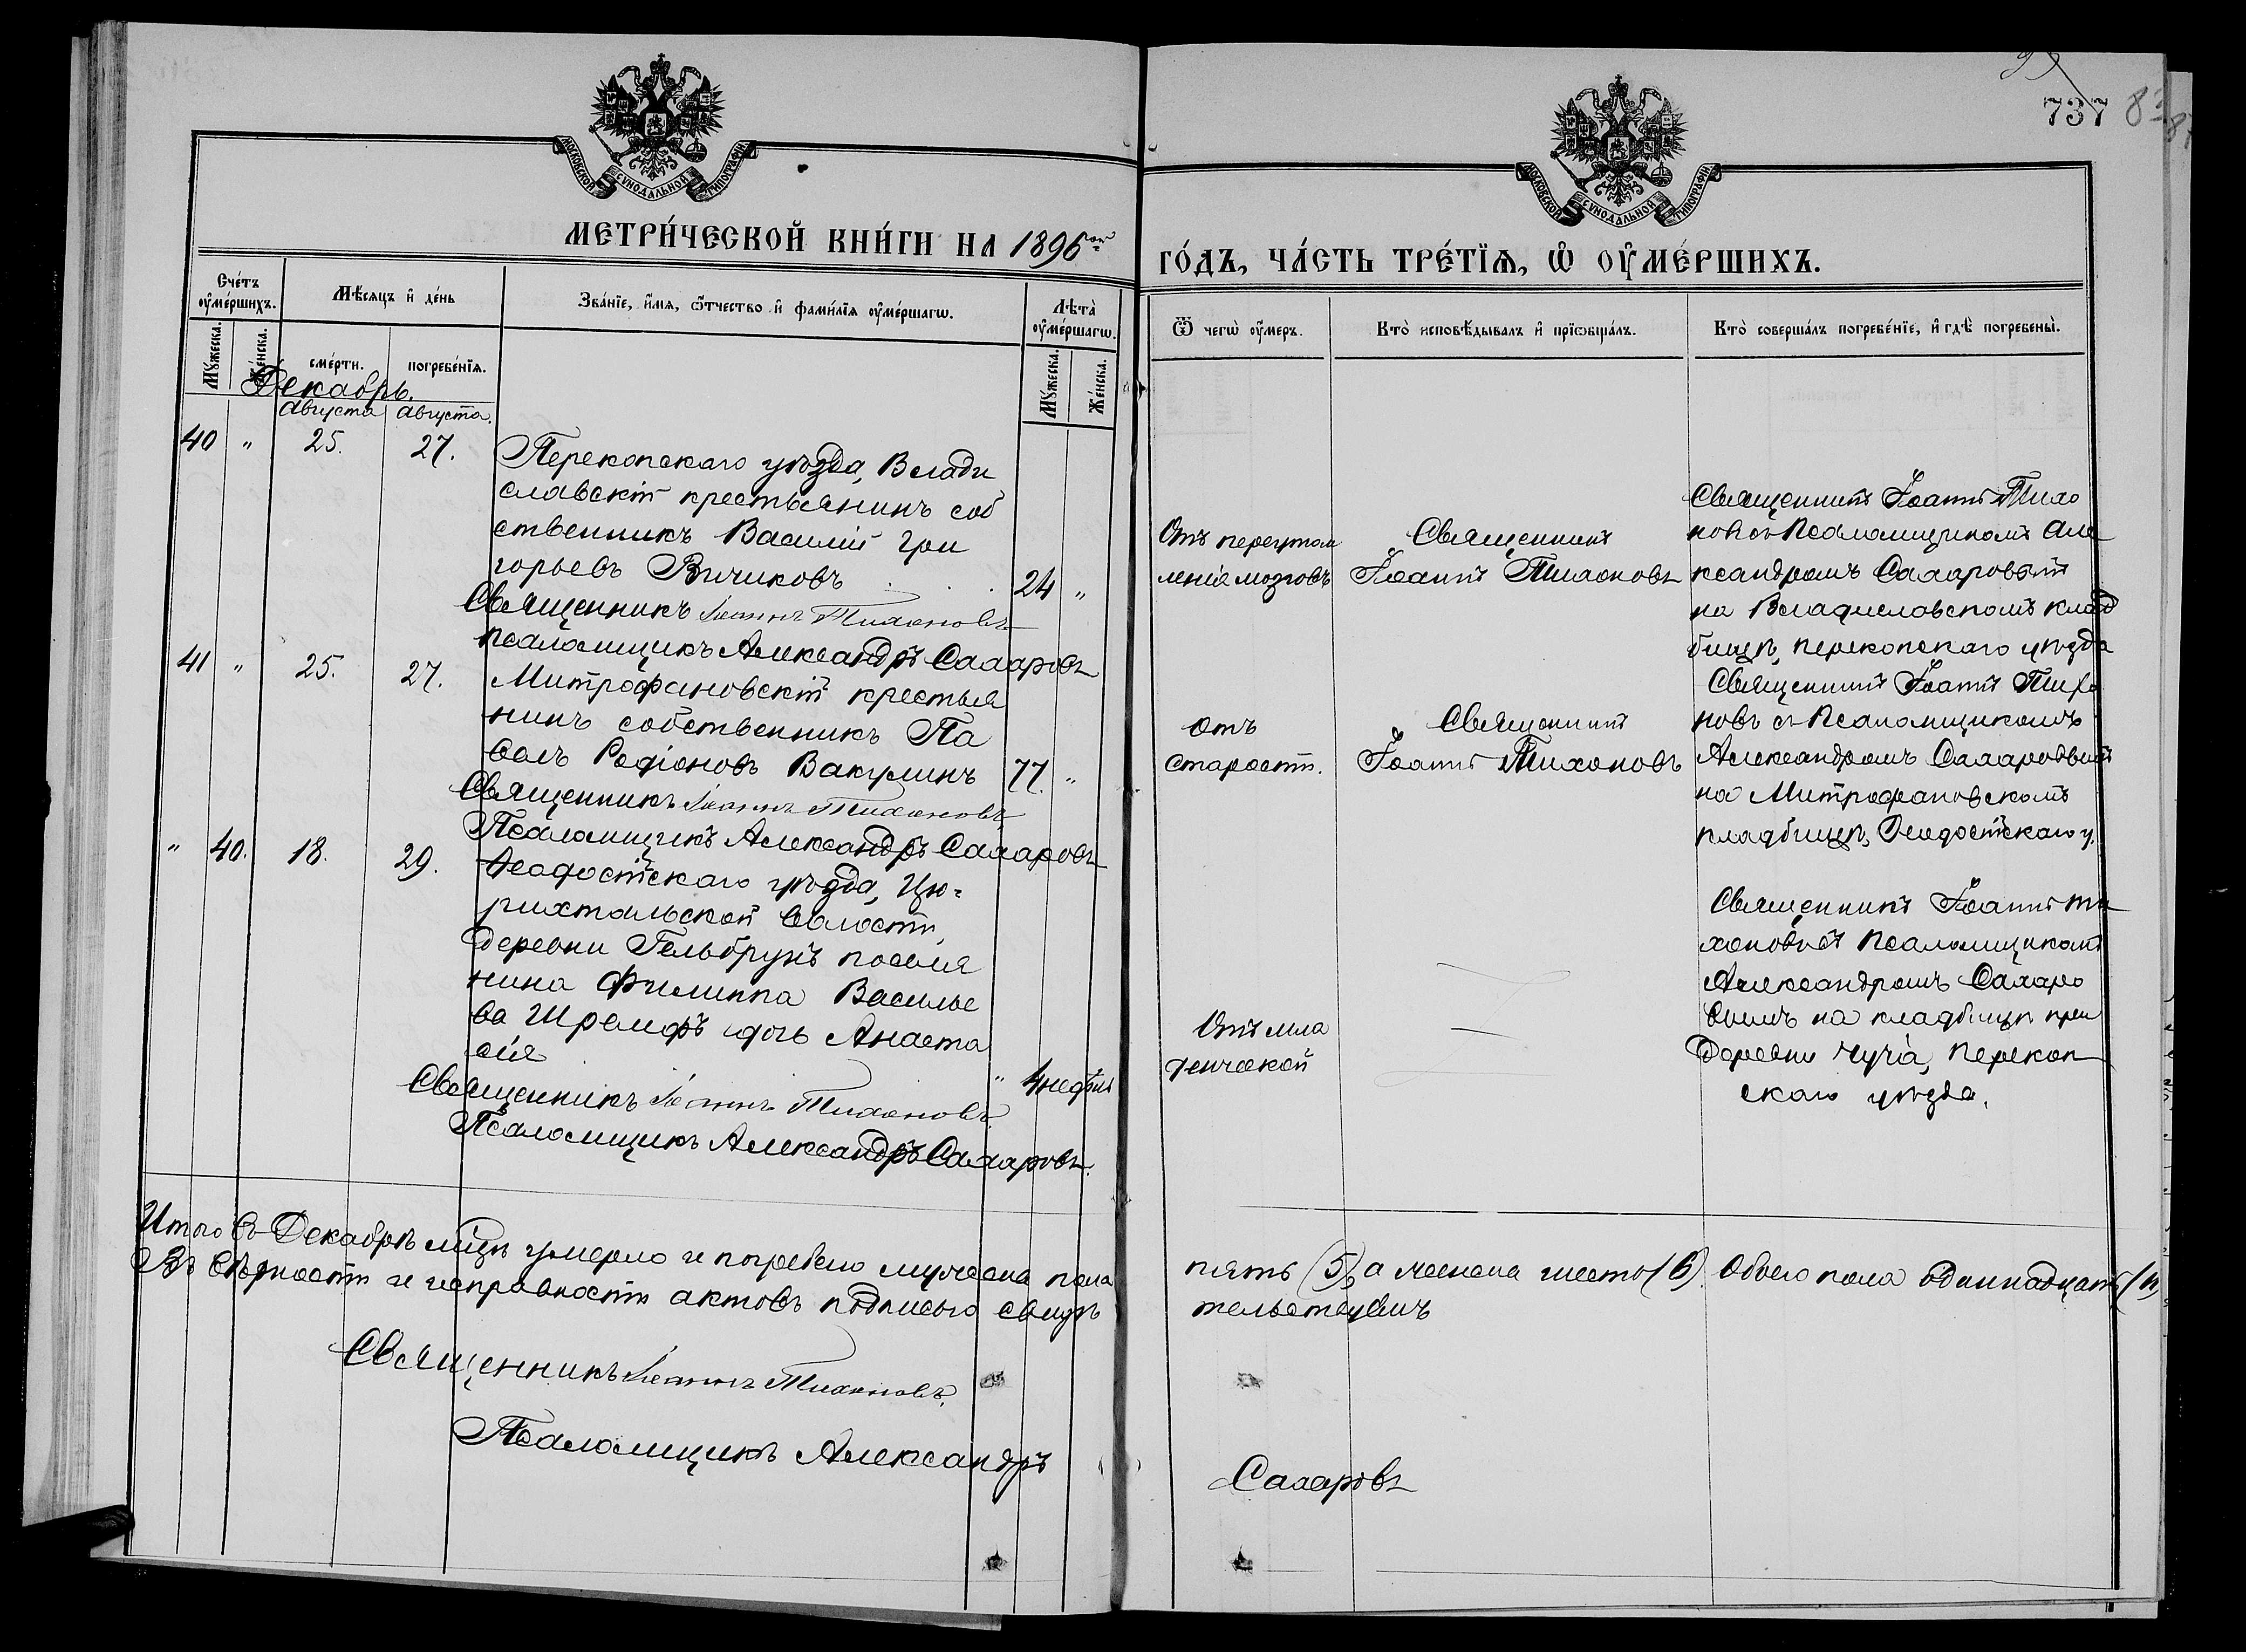 737
МОСКОВСКОЙ СѴНОДАЛЬНОЙ ТИПОГРАФІИ
МОСКОВСКОЙ СѴНОДАЛЬНОЙ ТИПОГРАФІИ
МЕТРИ́ЧЕСКОЙ КНИ́ГИ НА 1896
ГО́ДЪ, ЧА́СТЬ ТРЕ́ТЇѦ, Ѡ ОУ҆МЕ́РШИХЪ.
Сче́тъ оу҆ме́ршихъ.
Мѣ́сяцъ и҆ де́нь
Зва́нїе, и҆́мя, ѻ҆́тчество и҆ фами́лїя оу҆ме́ршагѡ.
Лѣта̀ оу҆ме́ршагѡ.
Ѿ чегѡ̀ оу҆́меръ.
Кто̀ исповѣ́дывалъ и҆ прїѡбща́лъ.
Кто̀ соверша́лъ погребе́нїе, и҆ гдѣ̀ погребены̀.
Му́жеска.
Же́нска.
сме́рти.
погребе́нїя.
Му́жеска.
Же́нска.
Декабрь.
Августа Августа.
40 " 25. 27.
Перекопскаго уѣзда, Влади
славскій крестьянинъ соб
ственникъ Василій Гри
горьевъ Вичиковъ 24 "
Священникъ Іоаннъ Тихоновъ
Псаломщикъ Александръ Сахаровъ
Отъ переутом
ленія мозговъ
Священникъ
Іоаннъ Тихоновъ
Священникъ Іоаннъ Тихо
новъ съ Псаломщикомъ Але
ксандромъ Сахаровымъ
на Владиславскомъ клад
бищѣ, перекопскаго уѣзда
41 " 25. 27.
Митрофановскій крестья
нинъ собственникъ Па
велъ Родіоновъ Вакулинъ 77. "
Священникъ Іоаннъ Тихоновъ
Псаломщикъ Александръ Сахаровъ
отъ
старости.
Священникъ
Іоаннъ Тихоновъ
Священникъ Іоаннъ Тихо
новъ съ Псаломщикомъ
Александромъ Сахаровымъ
на Митрофановскомъ
кладбищѣ, Ѳеодосійскаго у.
" 40. 18. 29.
Ѳеодосійскаго уѣзда, Цю-
рихтальской волости,
деревни Гельбрунъ поселя
нина Филиппа Василье
ва Шремфъ дочь Анаста
сія " 4 недѣли
Священникъ Іоаннъ Тихоновъ.
Псаломщикъ Александръ Сахаровъ.
Отъ мла
денческой
Священникъ Іоаннъ Ти
хоновъ съ Псаломщикомъ
Александромъ Сахаро
вымъ на кладбищѣ при
деревни Чуча, Перекоп
скаго уѣзда.
Итого въ Декабрѣ мцѣ умерло и погребено мужеска пола
пять (5), а женска шесть (6). Обоего пола одиннадцать (11)
Въ вѣрности и исправности актовъ подписью свидѣ
тельствуемъ
Священникъ Іоаннъ Тихоновъ.
Псаломщикъ Александръ
Сахаровъ